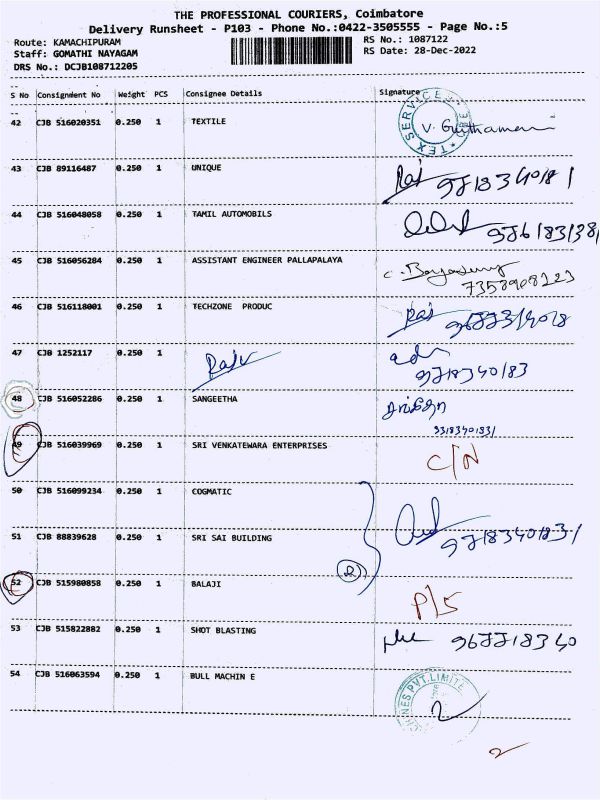 THE PROFESSIONAL COURIERS, Coimbatore
Delivery Runsheet - P103 - Phone No.:0422-3505555 - Page No.:5
Route: KAMACHIPURAM RS No.: 1087122
Staff: GOMATHI NAYAGAM RS Date: 28-Dec-2022
DRS No.: DCJB108712205
S No Consignment No Weight PCS Consignee Details Signature
42 CJB 516020351 0.250 1 TEXTILE
43 CJB 89116487 0.250 1 UNIQUE Raj
44 CJB 516048058 0.250 1 TAMIL AUTOMOBILS
45 CJB 516056284 0.250 1 ASSISTANT ENGINEER PALLAPALAYA
46 CJB 516118001 0.250 1 TECHZONE PRODUC Raj
47 CJB 1252117 0.250 1
48 CJB 516052286 0.250 1 SANGEETHA
49 CJB 516039969 0.250 1 SRI VENKATEWARA ENTERPRISES C/N
50 CJB 516099234 0.250 1 COGMATIC
51 CJB 88839628 0.250 1 SRI SAI BUILDING
52 CJB 515980858 0.250 1 BALAJI P/S
53 CJB 515822882 0.250 1 SHOT BLASTING
54 CJB 516063594 0.250 1 BULL MACHIN E